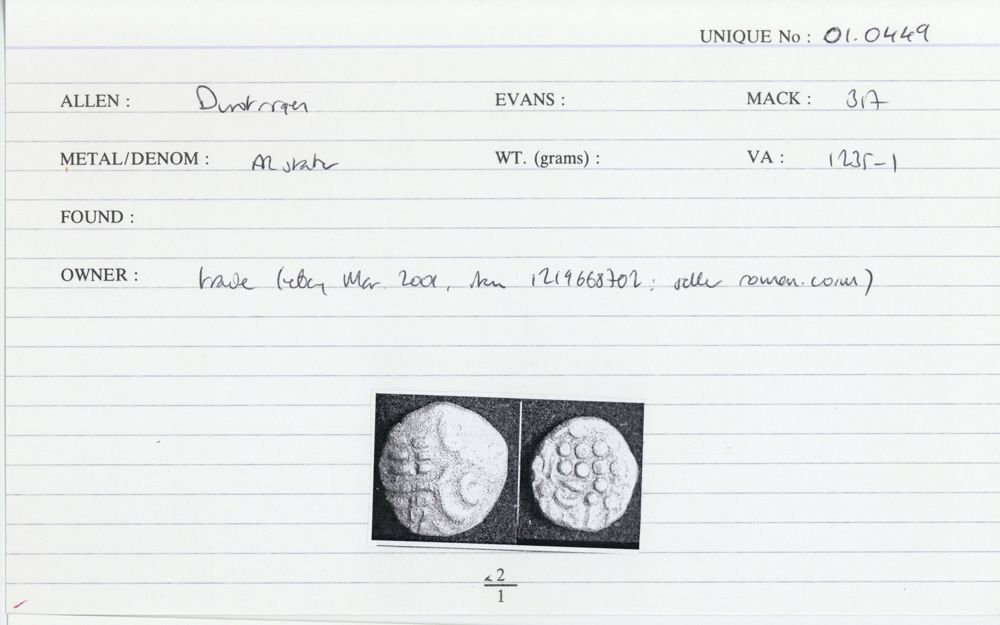 UNIQUE No : 01.0449
ALLEN : Durotrigan EVANS : MACK : 317
METAL/DENOM : AR stater WT. (grams) : VA : 1235-1
FOUND :
OWNER : trade (eBay Mar. 2001, item 1219668702; seller roman.coins)
2
1